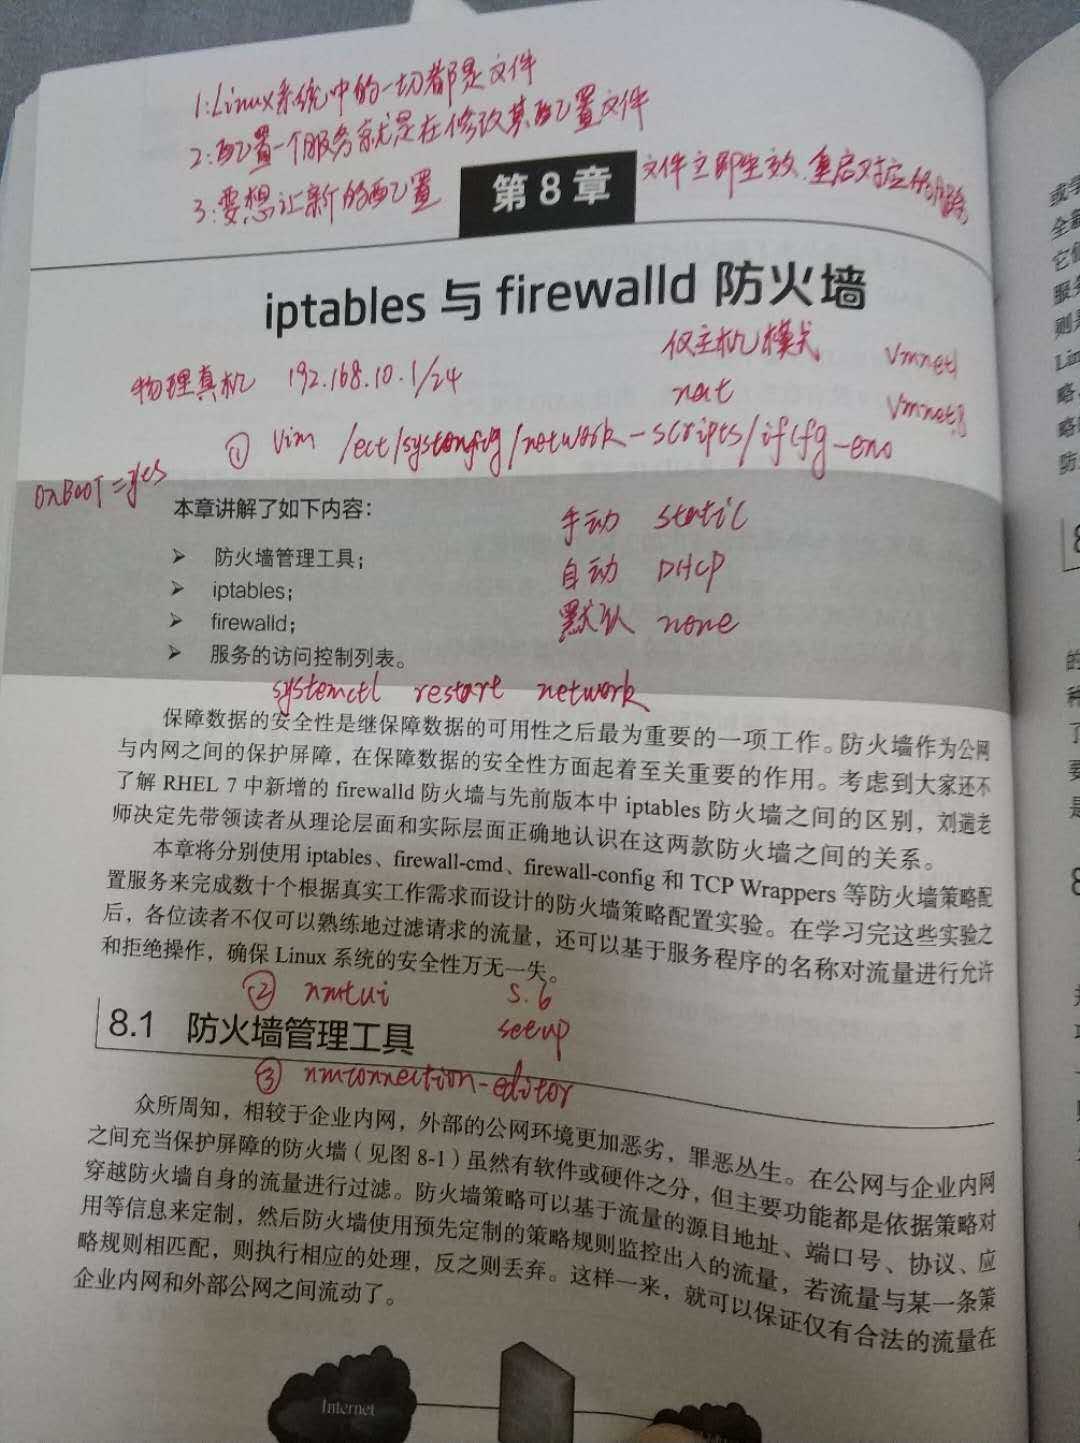 1:Linux系统中的一切都是文件
2:配置一个服务就是在修改其配置文件
3:要想让新的配置 文件立即生效.重启对应的服务
第8章
iptables 与 firewalld 防火墙
仅主机模式 Vmnet1
物理真机 192.168.10.1/24
nat Vmnet8
① vim /ect/sysconfig/network-scripts/ifcfg-eno
ONBOOT=yes
本章讲解了如下内容：
手动 static
➤ 防火墙管理工具；
自动 DHCP
➤ iptables；
➤ firewalld；
默认 none
➤ 服务的访问控制列表。
systemctl restart network
保障数据的安全性是继保障数据的可用性之后最为重要的一项工作。防火墙作为公网
与内网之间的保护屏障，在保障数据的安全性方面起着至关重要的作用。考虑到大家还不
了解 RHEL 7 中新增的 firewalld 防火墙与先前版本中 iptables 防火墙之间的区别，刘遄老
师决定先带领读者从理论层面和实际层面正确地认识在这两款防火墙之间的关系。
本章将分别使用 iptables、firewall-cmd、firewall-config 和 TCP Wrappers 等防火墙策略配
置服务来完成数十个根据真实工作需求而设计的防火墙策略配置实验。在学习完这些实验之
后，各位读者不仅可以熟练地过滤请求的流量，还可以基于服务程序的名称对流量进行允许
和拒绝操作，确保 Linux 系统的安全性万无一失。
② nmtui 5.6
setup
8.1 防火墙管理工具
③ nm-connection-editor
众所周知，相较于企业内网，外部的公网环境更加恶劣，罪恶丛生。在公网与企业内网
之间充当保护屏障的防火墙（见图 8-1）虽然有软件或硬件之分，但主要功能都是依据策略对
穿越防火墙自身的流量进行过滤。防火墙策略可以基于流量的源目地址、端口号、协议、应
用等信息来定制，然后防火墙使用预先定制的策略规则监控出入的流量，若流量与某一条策
略规则相匹配，则执行相应的处理，反之则丢弃。这样一来，就可以保证仅有合法的流量在
企业内网和外部公网之间流动了。
Internet